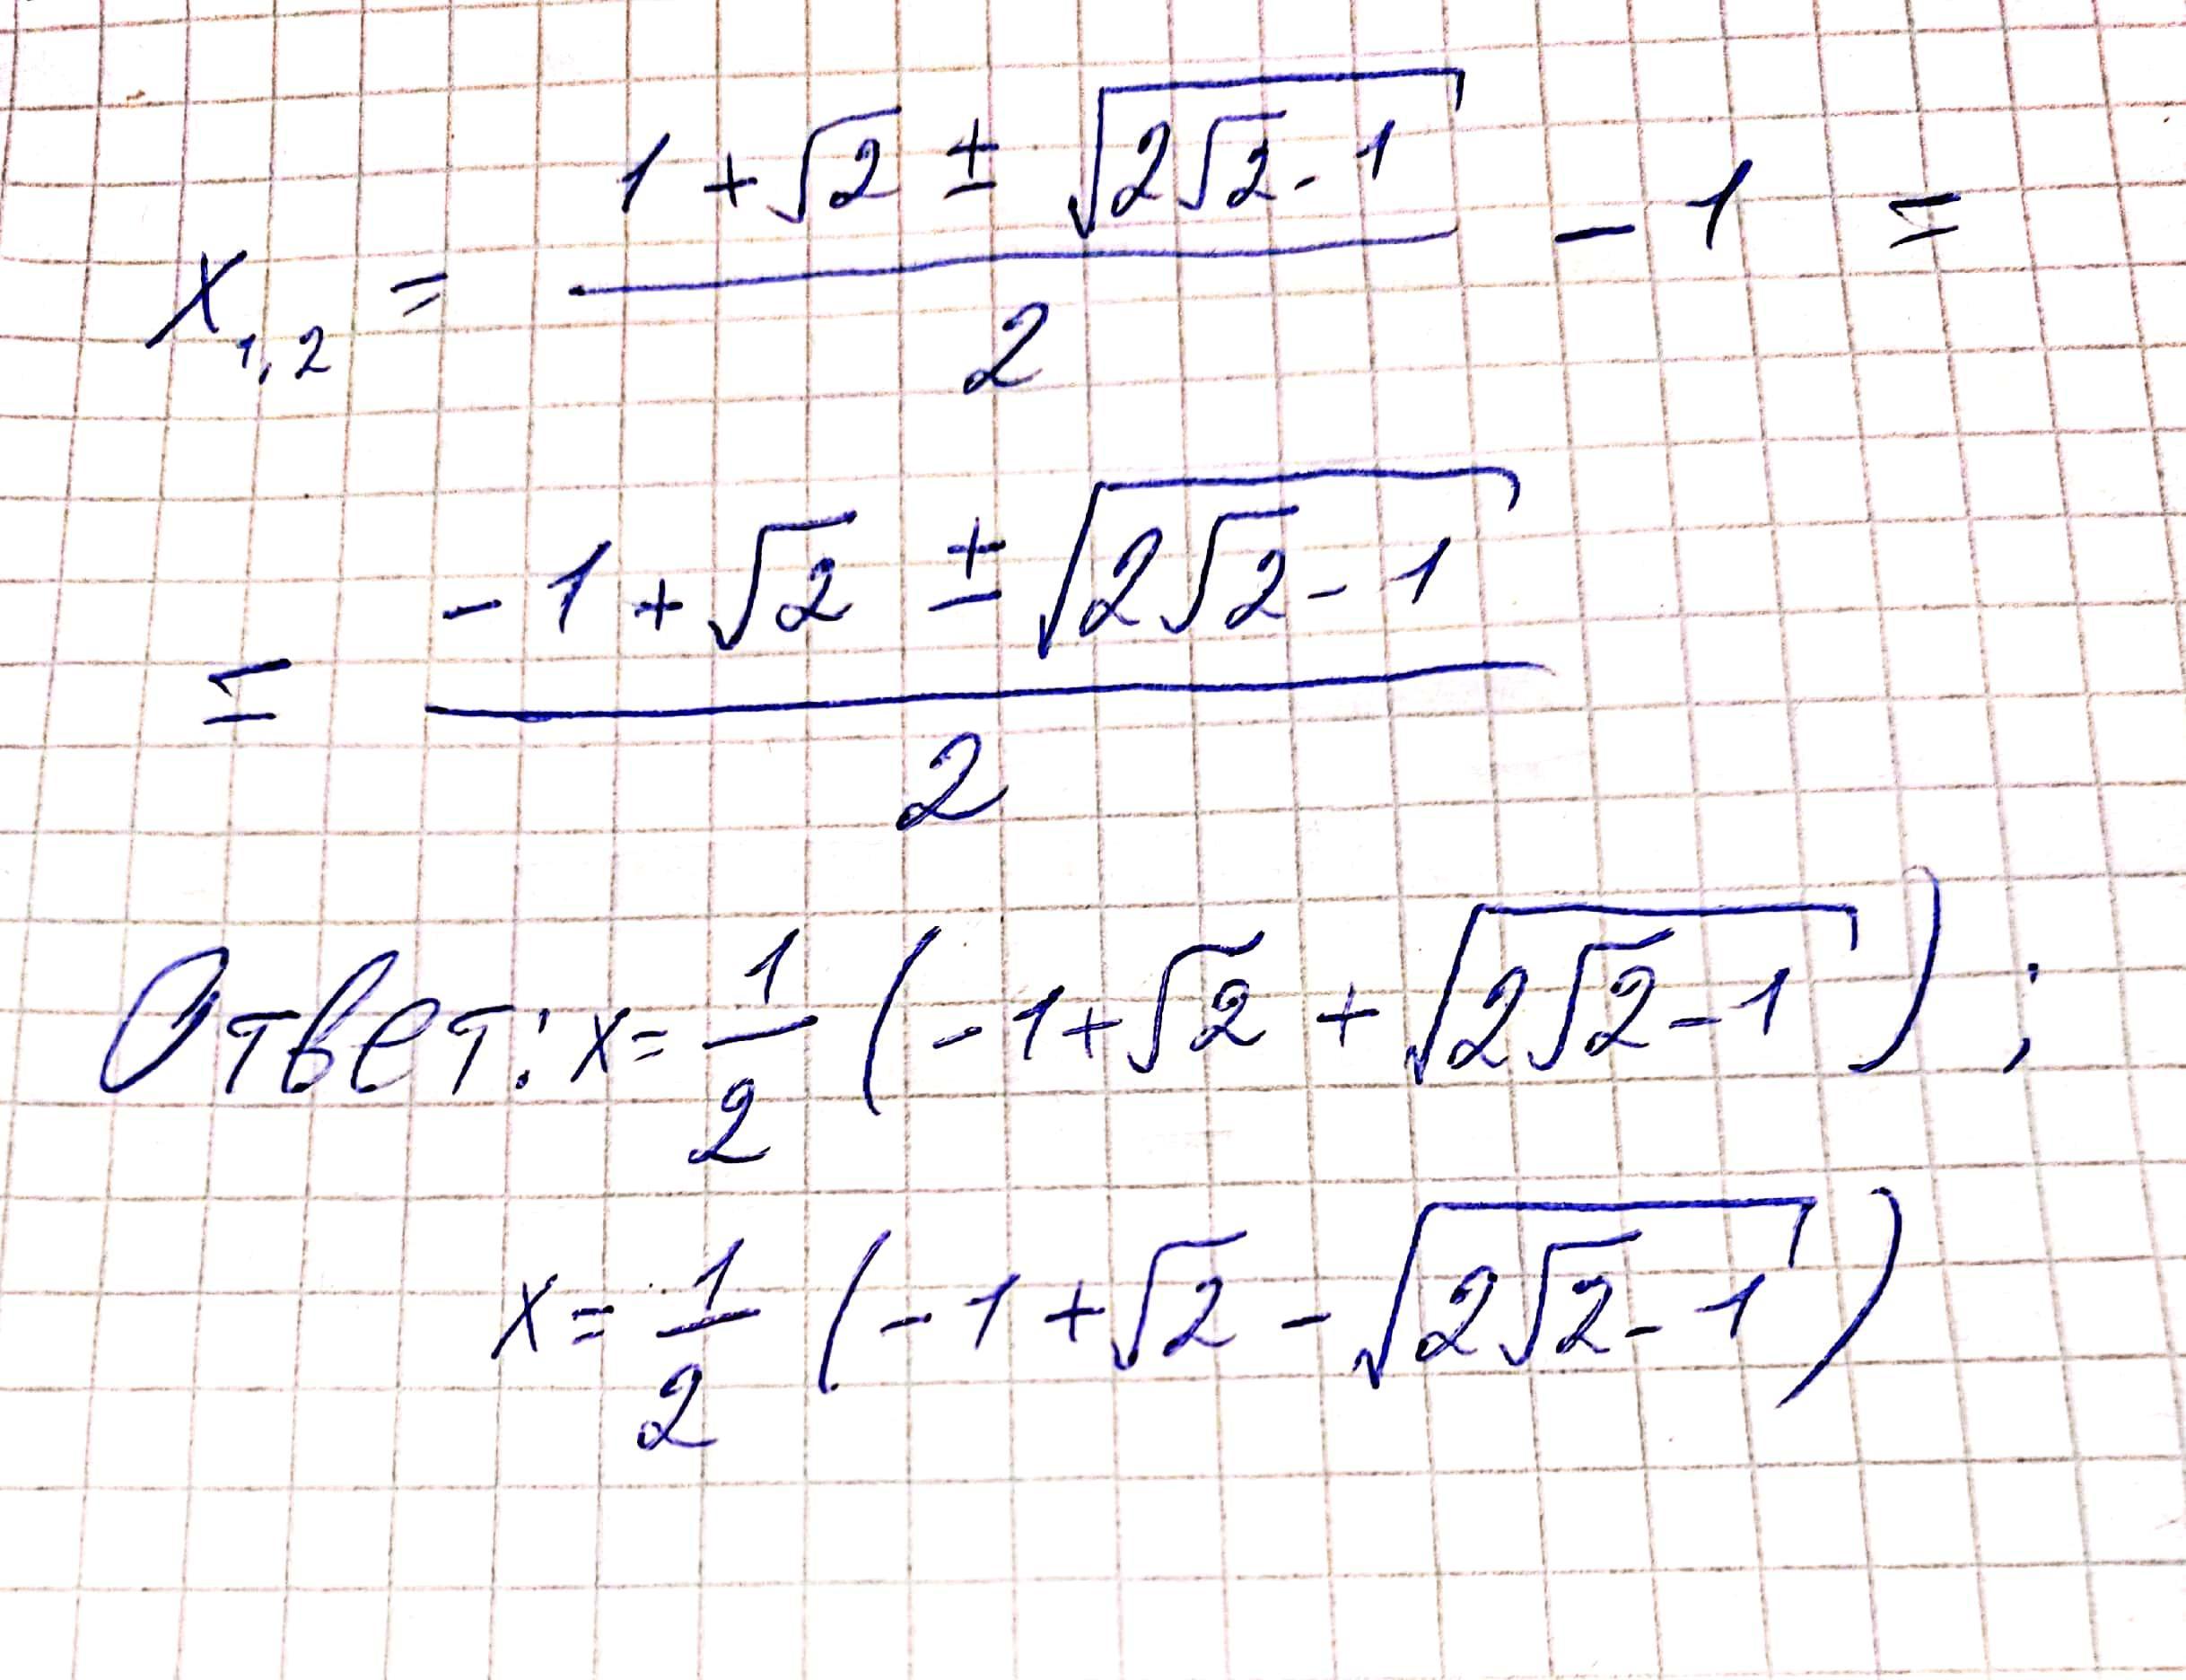 x₁,₂ = (1 + √2 ± √(2√2 - 1))/2 - 1 =
= (-1 + √2 ± √(2√2 - 1))/2
Ответ: x = 1/2 (-1 + √2 + √(2√2 - 1)) ;
x = 1/2 (-1 + √2 - √(2√2 - 1))